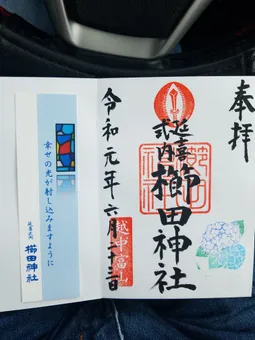 奉拝
延喜
式内
櫛田神社
越中富山
令和元年六月二十三日
幸せの光が射し込みますように
延喜式内
櫛田神社